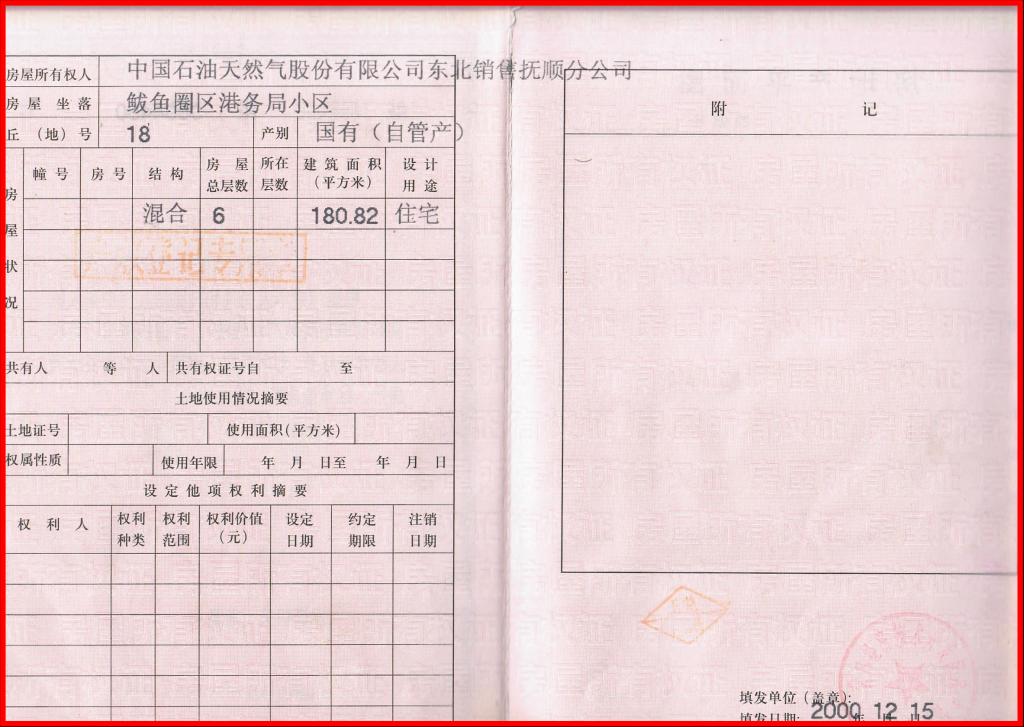 房屋所有权人 中国石油天然气股份有限公司东北销售抚顺分公司
房屋坐落 鲅鱼圈区港务局小区
丘（地）号 18 产别 国有（自管产）
房屋状况
幢号 房号 结构 房屋总层数 所在层数 建筑面积（平方米） 设计用途
混合 6 180.82 住宅
登记专
共有人 等 人 共有权证号自 至
土地使用情况摘要
土地证号 使用面积(平方米)
权属性质 使用年限 年 月 日至 年 月 日
设定他项权利摘要
权利人 权利种类 权利范围 权利价值（元） 设定日期 约定期限 注销日期
附 记
填发单位（盖章）：
填发日期: 2000年12月15日